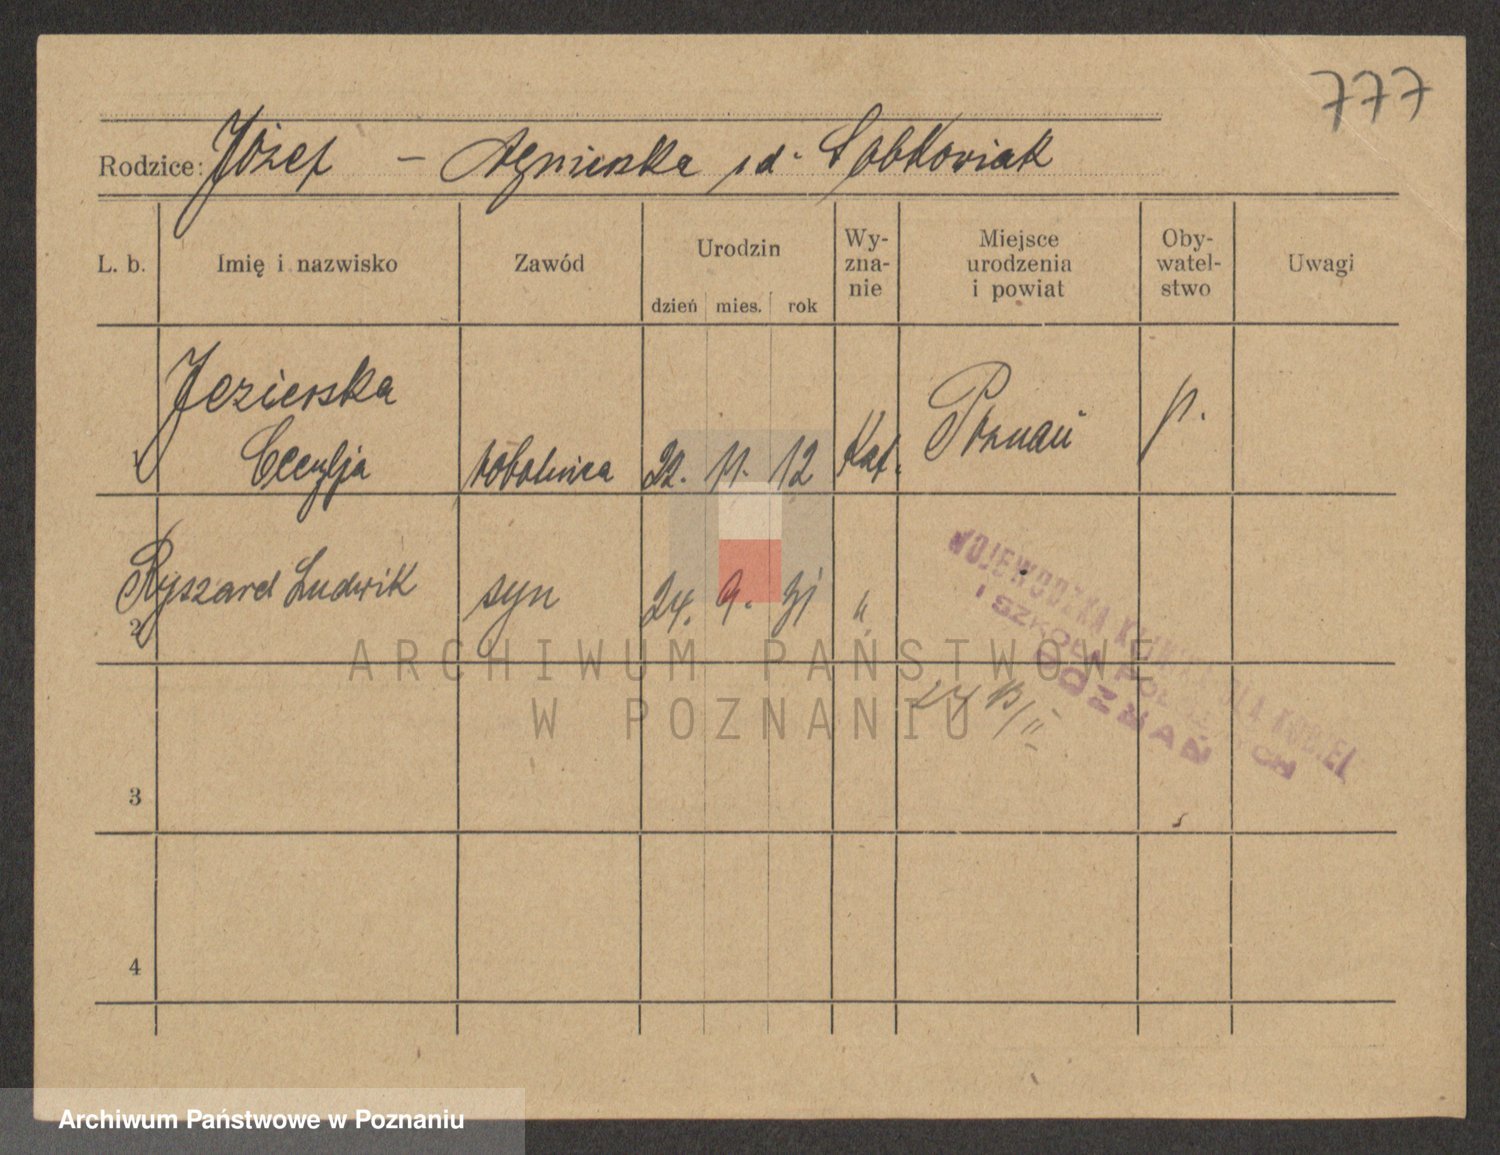 777
Rodzice: Józef – Agnieszka z d. Sobkowiak
L. b. Imię i nazwisko Zawód Urodzin dzień mies. rok Wy-zna-nie Miejsce urodzenia i powiat Oby-watel-stwo Uwagi
Jezierska
1 Cecylja robotnica 22. 11. 12 Kat. Poznań p.
2 Ryszard Ludwik syn 24. 9. 31 "
WOJEWÓDZKA KLINIKA DLA KOBIET
I SZKOŁA POŁOŻNYCH
POZNAŃ
3
4
ARCHIWUM PAŃSTWOWE
W POZNANIU
Archiwum Państwowe w Poznaniu